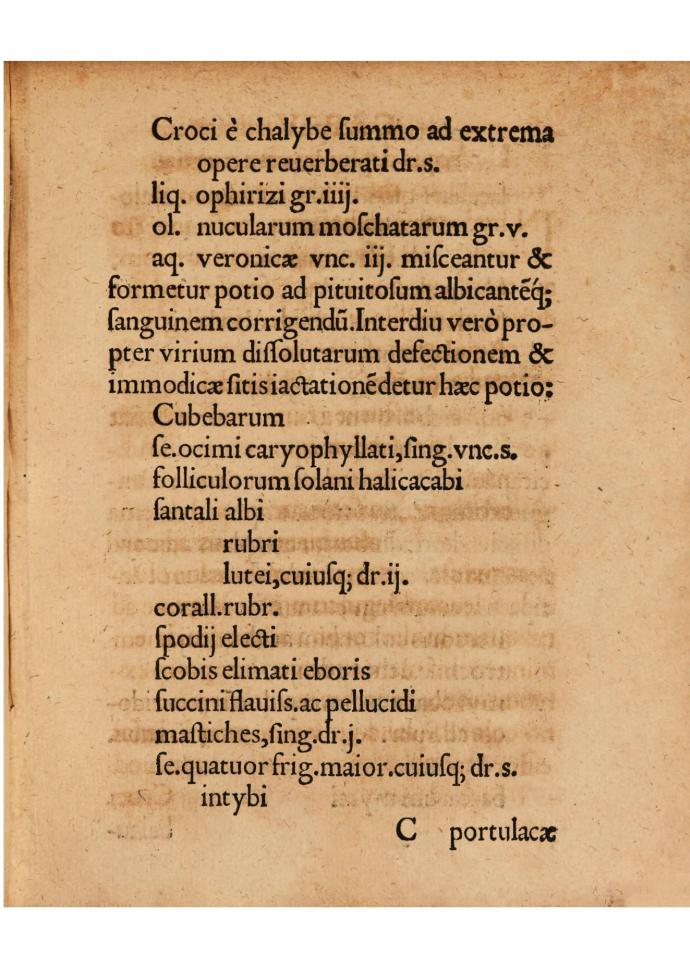 Croci è chalybe ſummo ad extrema
opere reuerberati dr.s.
liq. ophirizi gr.iiij.
ol. nucularum moſchatarum gr.v.
aq. veronicæ vnc. iij. miſceantur &
formetur potio ad pituitoſum albicantẽq́;
ſanguinem corrigendũ. Interdiu verò pro-
pter virium diſſolutarum defectionem &
immodicæ ſitis iactationẽ detur hæc potio:
Cubebarum
ſe.ocimi caryophyllati, ſing.vnc.s.
folliculorum ſolani halicacabi
ſantali albi
rubri
lutei, cuiuſq; dr.ij.
corall.rubr.
ſpodij electi
ſcobis elimati eboris
ſuccini flauiſs. ac pellucidi
maſtiches, ſing.dr.j.
ſe.quatuor frig.maior.cuiuſq; dr.s.
intybi
C portulacæ